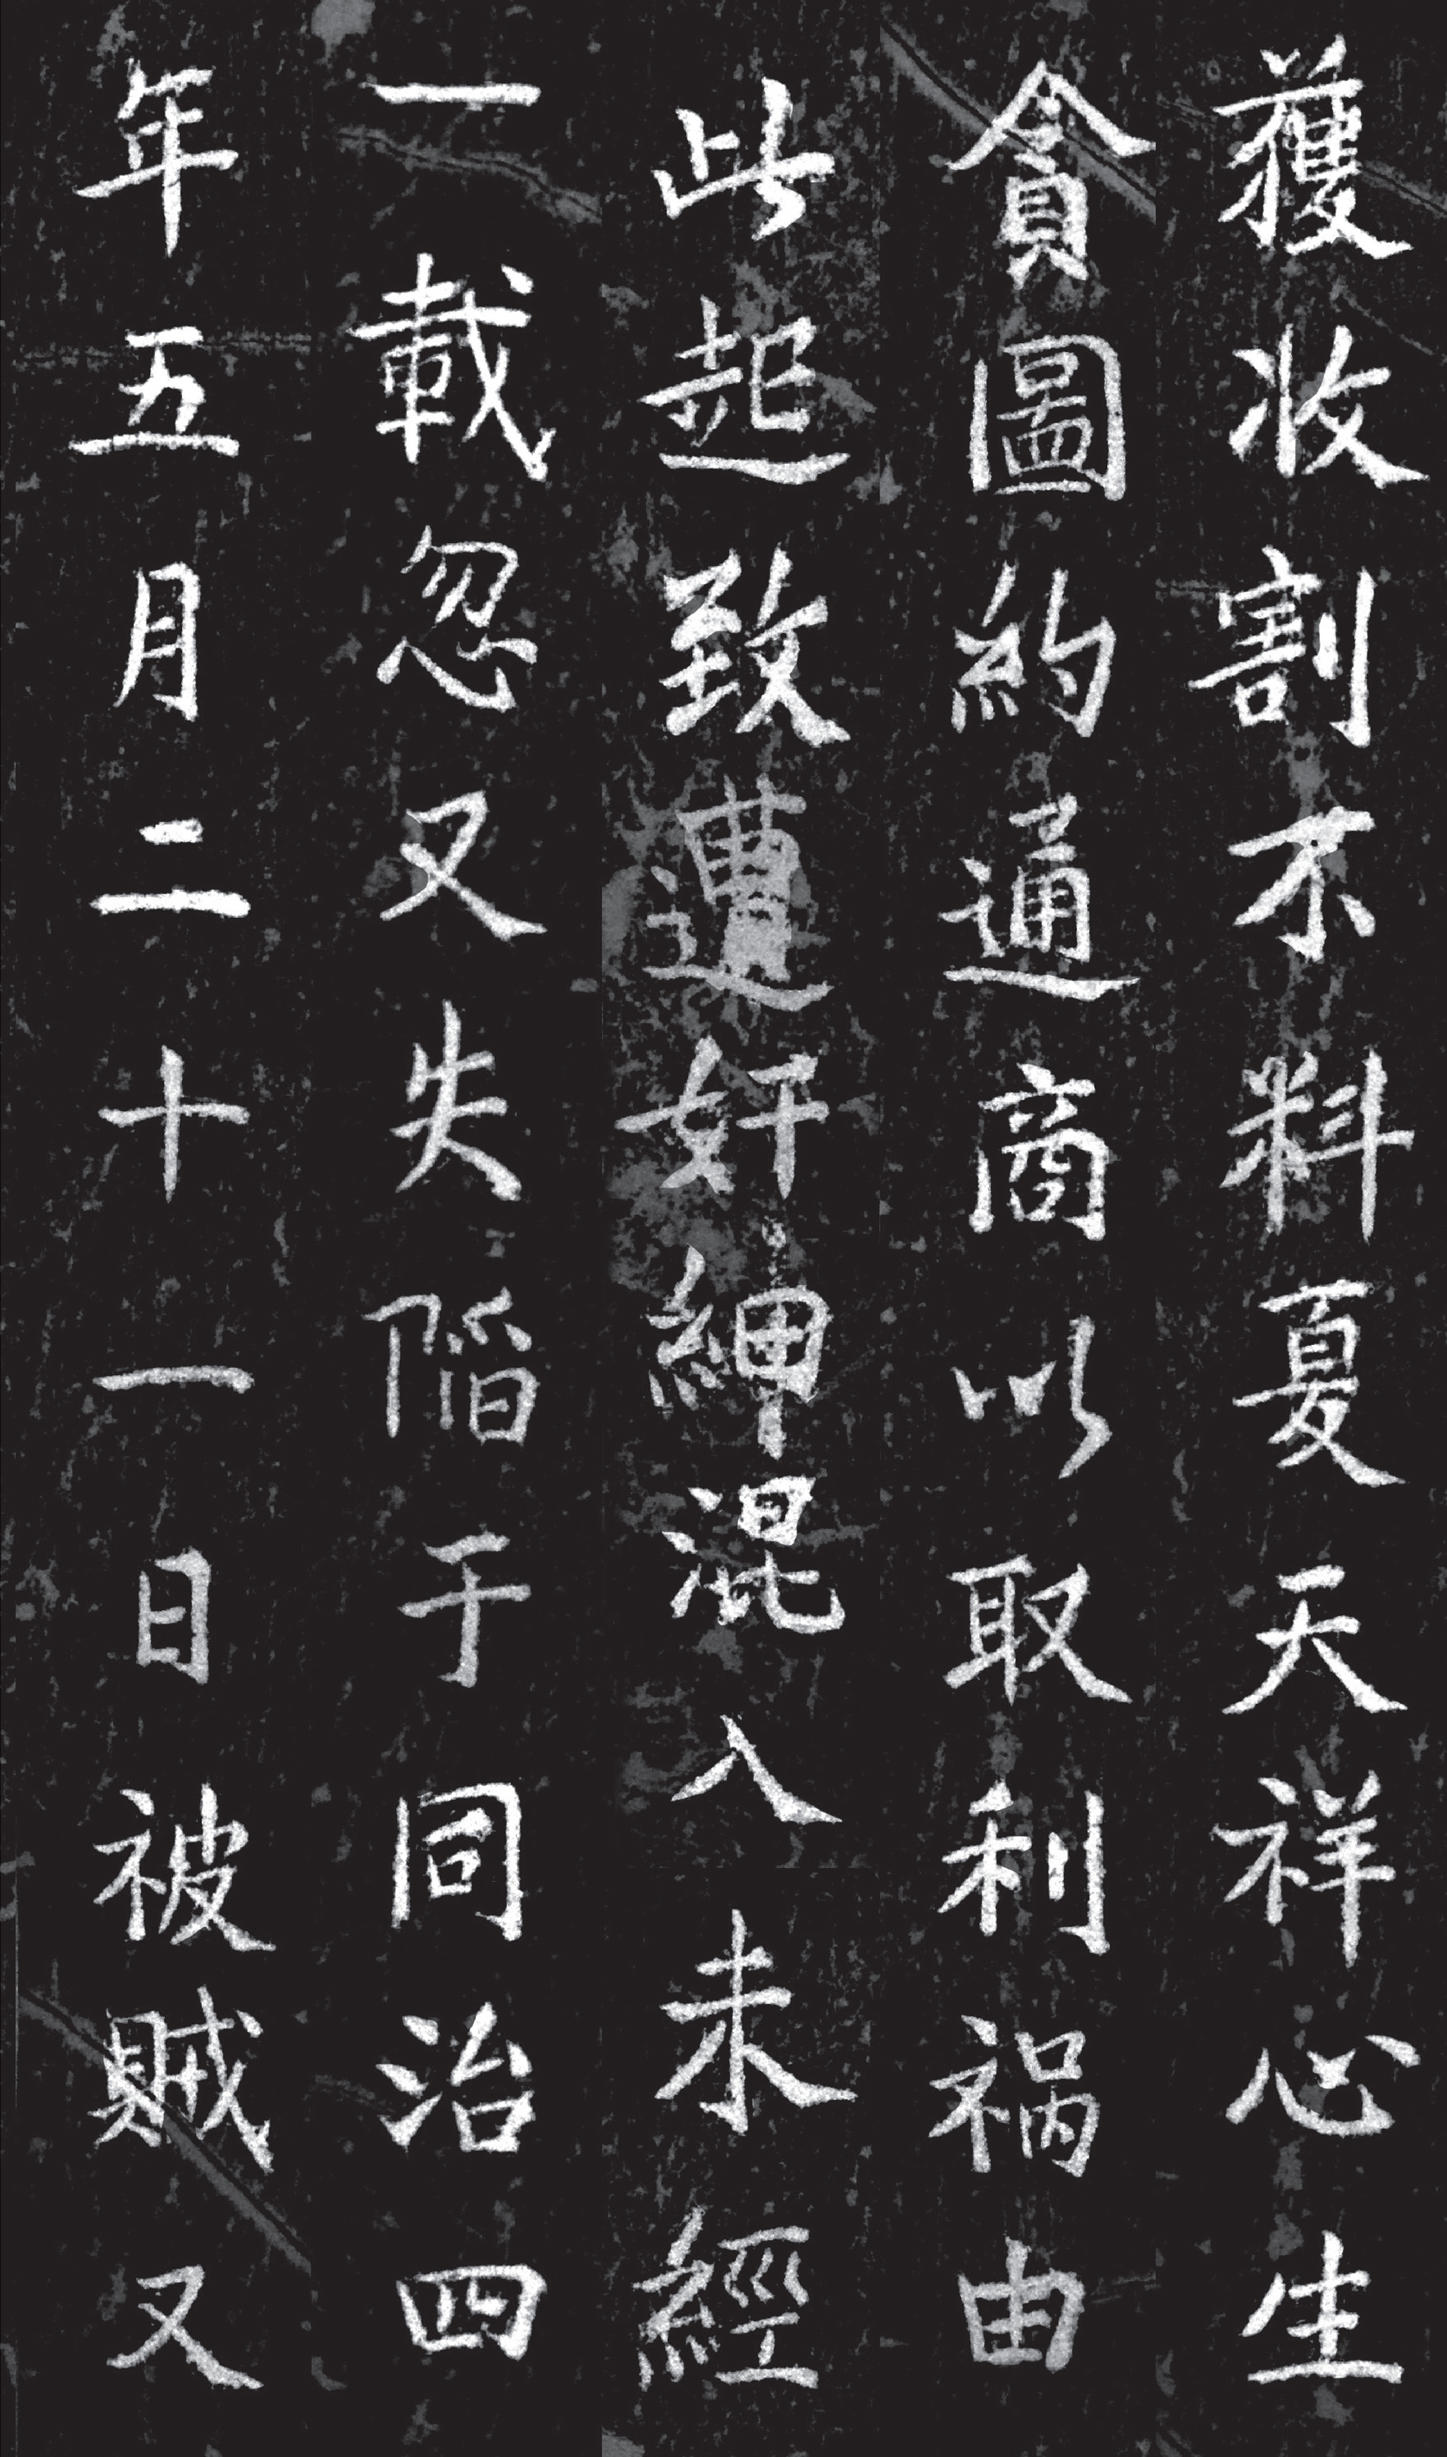 獲收割不料夏天祥心生
貪圖約通商以取利禍由
此起致遭奸細混入未經
一載忽又失陷于同治四
年五月二十一日被賊又